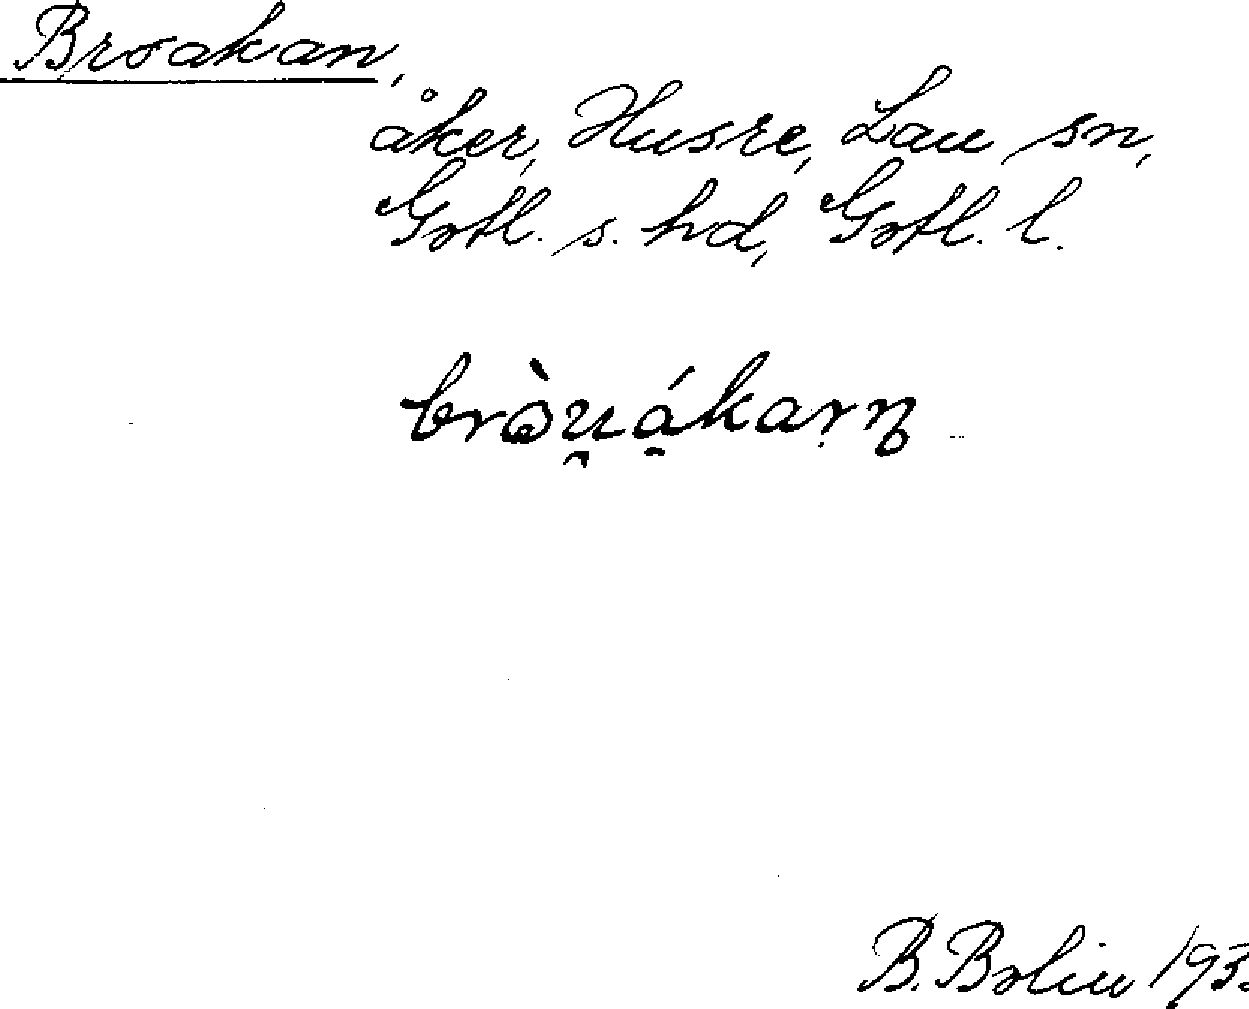 Broakan,
åker, Husre, Lau sn,
Gotl. s. hd, Gotl. l.
B. Bolin 193